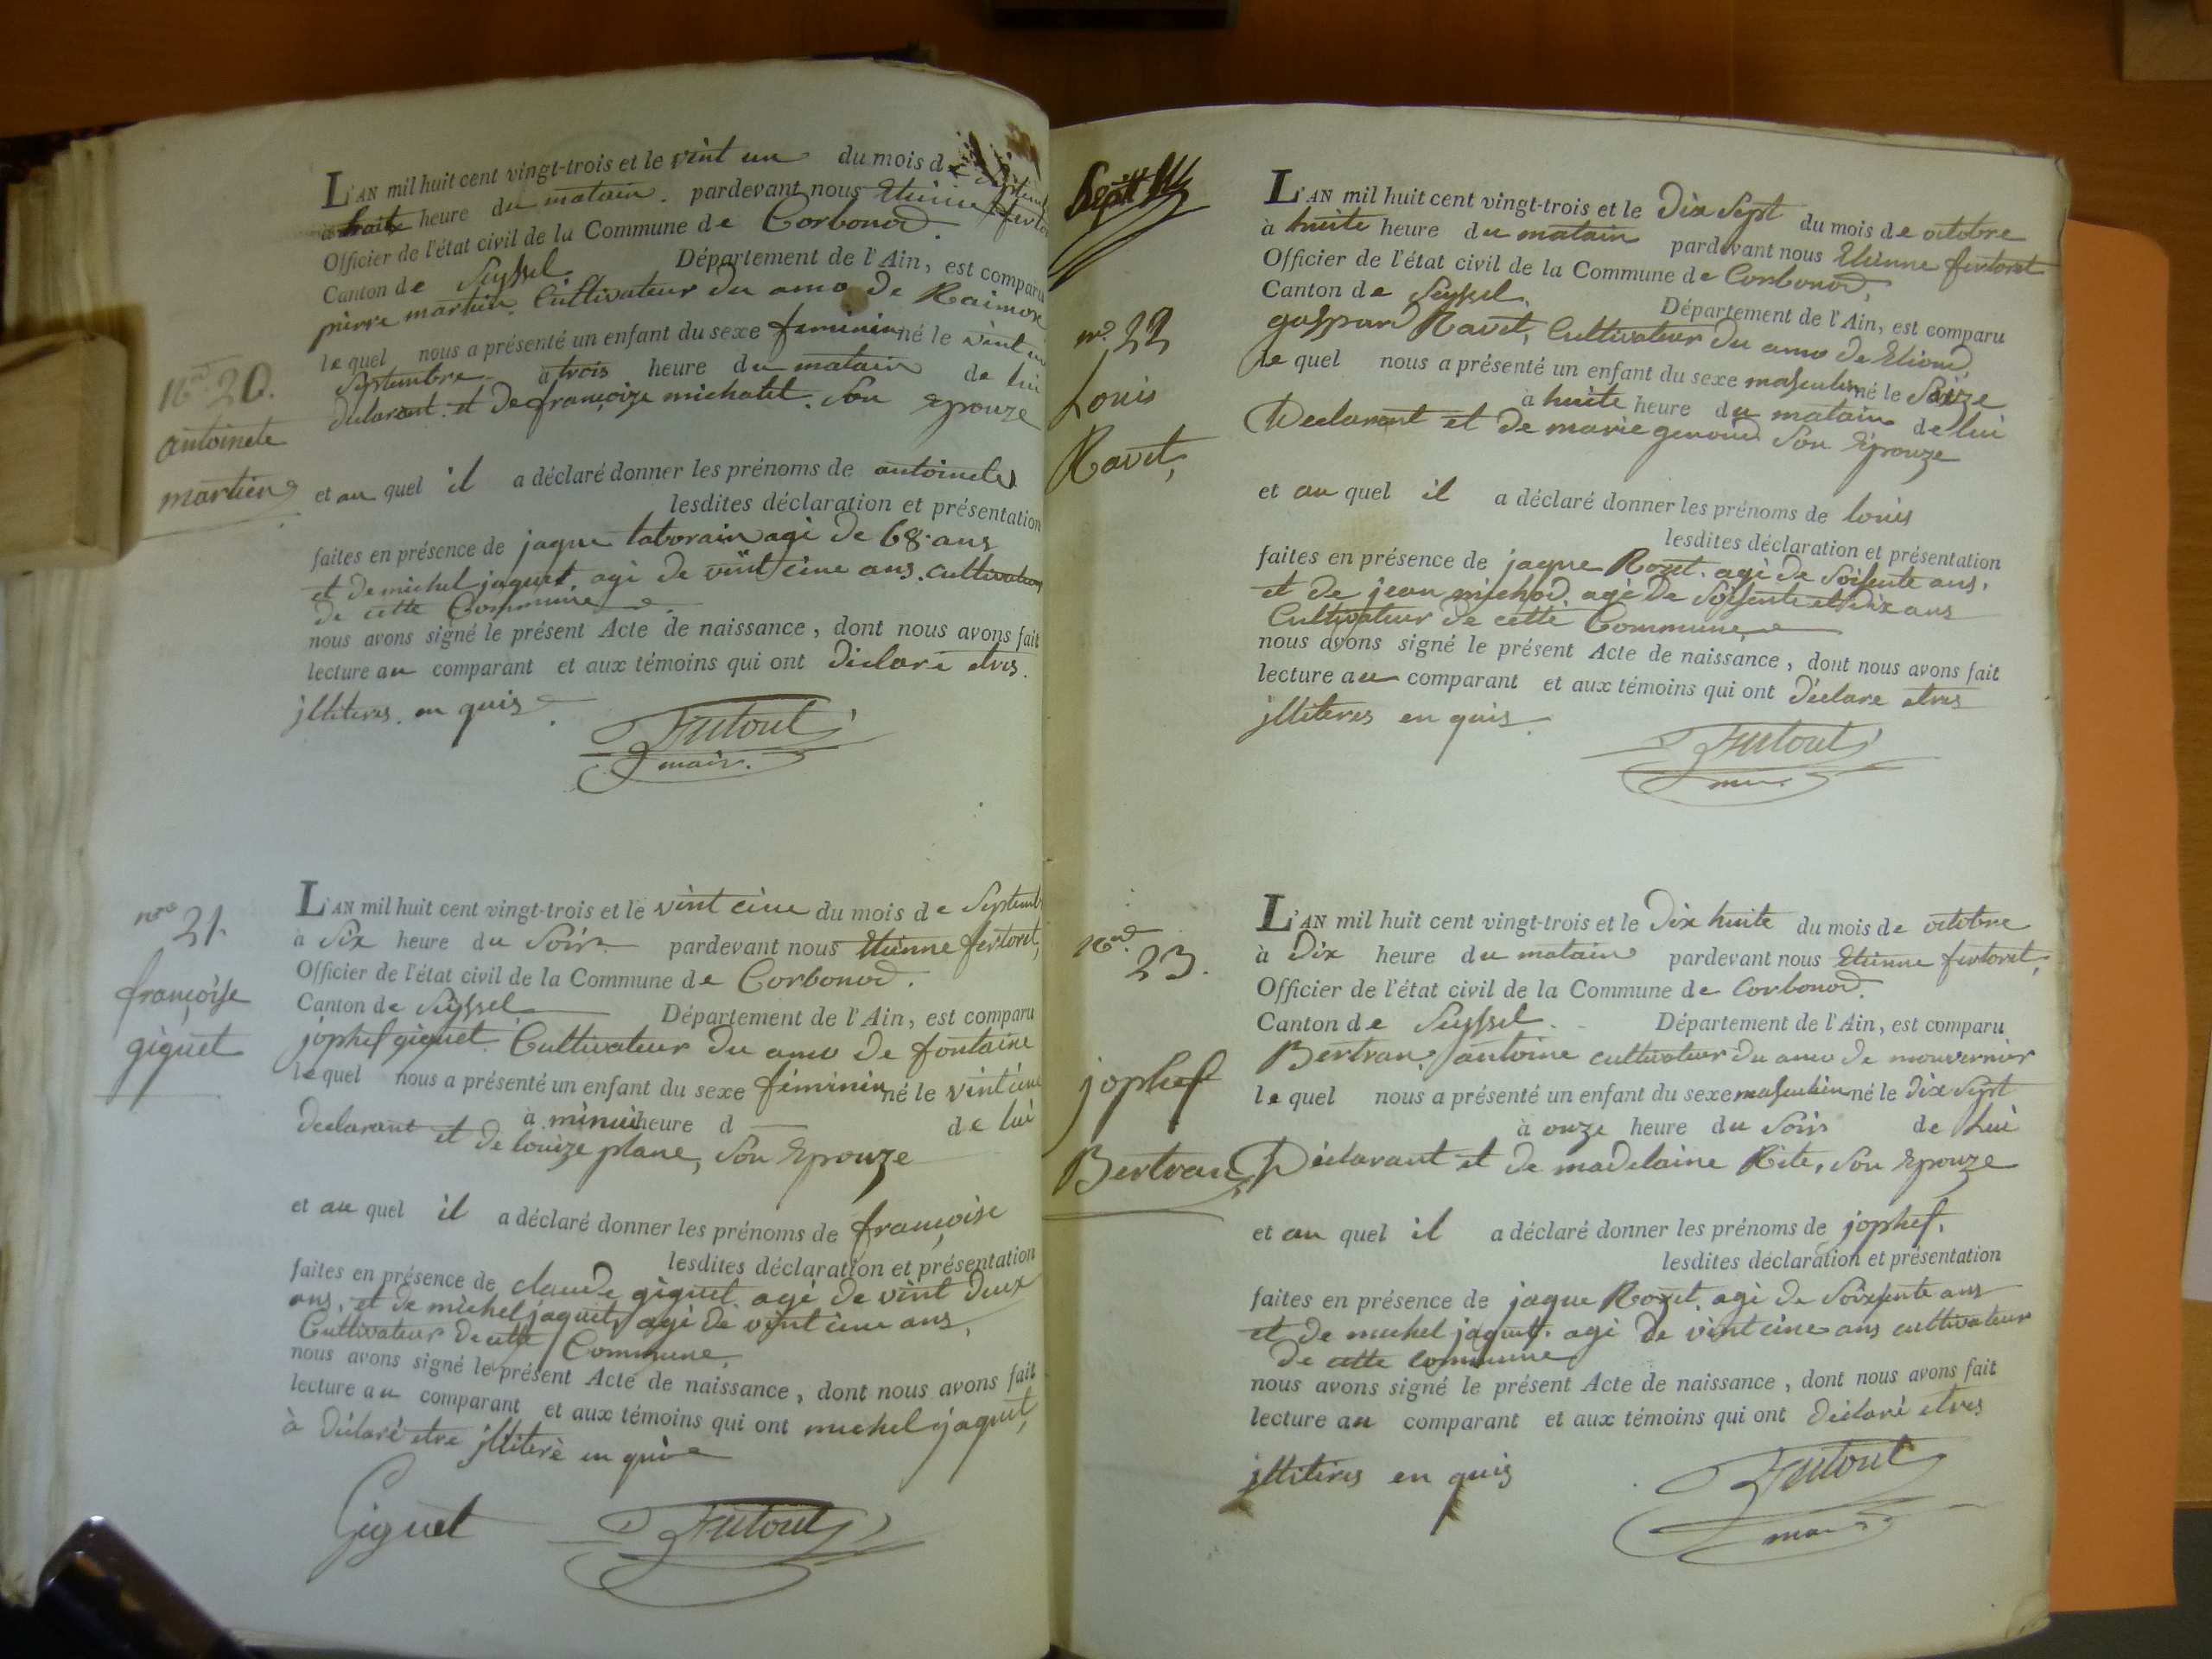 L'AN mil huit cent vingt-trois et le vint un du mois de
à huite heure du matain. pardevant nous Etienne
Officier de l'état civil de la Commune de Corbonod.
Canton de Seyssel. Département de l'Ain, est comparu
pierre martin. Cultivateur du amo de Raimon
le quel nous a présenté un enfant du sexe feminin né le vint un
Septembre à trois heure du matain de lui
declarant. et de françoize michalet. Son Epouze
No 20.
antoinete
martin
et au quel il a déclaré donner les prénoms de antoinete
lesdites déclaration et présentation
faites en présence de jaque taborain agé de 68. ans
et de michel jaquet. agé de vint cinc ans. Cultivateur
de cette Commune
nous avons signé le présent Acte de naissance, dont nous avons fait
lecture au comparant et aux témoins qui ont déclaré etres.
jlliteres. en quis
Fertoret
maire.
nro 21.
françoise
giguet
L'AN mil huit cent vingt-trois et le vint cinc du mois de Septemb
à Six heure du Soir pardevant nous Etienne fertoret,
Officier de l'état civil de la Commune de Corbonod.
Canton de Seyssel Département de l'Ain, est comparu
jophef giguet Cultivateur du amo de fontaine
le quel nous a présenté un enfant du sexe féminin né le vint cinc
à minui heure d de lui
declarant et de louize plane, Son Epouze
et au quel il a déclaré donner les prénoms de françoise
lesdites déclaration et présentation
faites en présence de claude giguet agé de vint deux
ans, et de michel jaquet, agé de vint cinc ans,
Cultivateur de cette Commune,
nous avons signé le présent Acte de naissance, dont nous avons fait
lecture au comparant et aux témoins qui ont michel jaquet,
à déclaré etre jlliteré en quis
Giguet Fertoret
no 22
Louis
Ravet,
L'AN mil huit cent vingt-trois et le Dix Sept du mois de octobre
à huite heure du matain pardevant nous Etienne fertoret
Officier de l'état civil de la Commune de Corbonod,
Canton de Seyssel. Département de l'Ain, est comparu
gaspard Ravet, Cultivateur du amo de Eliond,
le quel nous a présenté un enfant du sexe masculin né le Saize
à huite heure du matain de lui
Declarant et de marie genoud Son Epouze
et au quel il a déclaré donner les prénoms de louis
lesdites déclaration et présentation
faites en présence de jaque Rozet. agé de Soisente ans,
et de jean michod, agé de Soisente et dix ans
Cultivateur de cette Commune,
nous avons signé le présent Acte de naissance, dont nous avons fait
lecture au comparant et aux témoins qui ont déclare etres
jlliteres en quis.
Fertoret
No
23.
jophef
Bertran
L'AN mil huit cent vingt-trois et le Dix huite du mois de octobre
à Dix heure du matain pardevant nous Etienne fertoret,
Officier de l'état civil de la Commune de Corbonod.
Canton de Seyssel. Département de l'Ain, est comparu
Bertran, antoine cultivateur du amo de mouvernier
le quel nous a présenté un enfant du sexe masculin né le Dix Sept
à onze heure du Soir de Lui
Déclarant et de madelaine Rite, Son Epouze
et au quel il a déclaré donner les prénoms de jophef,
lesdites déclaration et présentation
faites en présence de jaque Rozet. agé de Soixsente ans
et de michel jaquet. agé de vint cinc ans cultivateur
de cette commune
nous avons signé le présent Acte de naissance, dont nous avons fait
lecture au comparant et aux témoins qui ont déclaré etres
jlliteres en quis
Fertoret